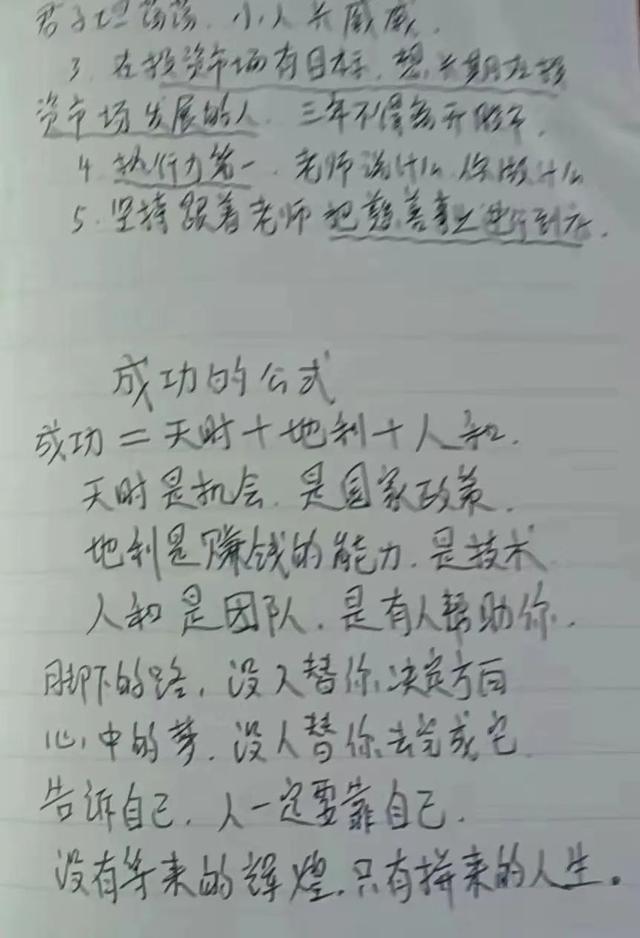 君子坦荡荡，小人长戚戚.
3. 在投资市场有目标，想长期在投
资市场发展的人，三年不得离开股市.
4. 执行力第一，老师说什么你做什么
5. 坚持跟着老师把慈善事业进行到底.
成功的公式
成功＝天时＋地利＋人和.
天时是机会，是国家政策.
地利是赚钱的能力，是技术
人和是团队，是有人帮助你.
脚下的路，没人替你决定方向
心中的梦，没人替你去完成它
告诉自己，人一定要靠自己.
没有等来的辉煌，只有拼来的人生。